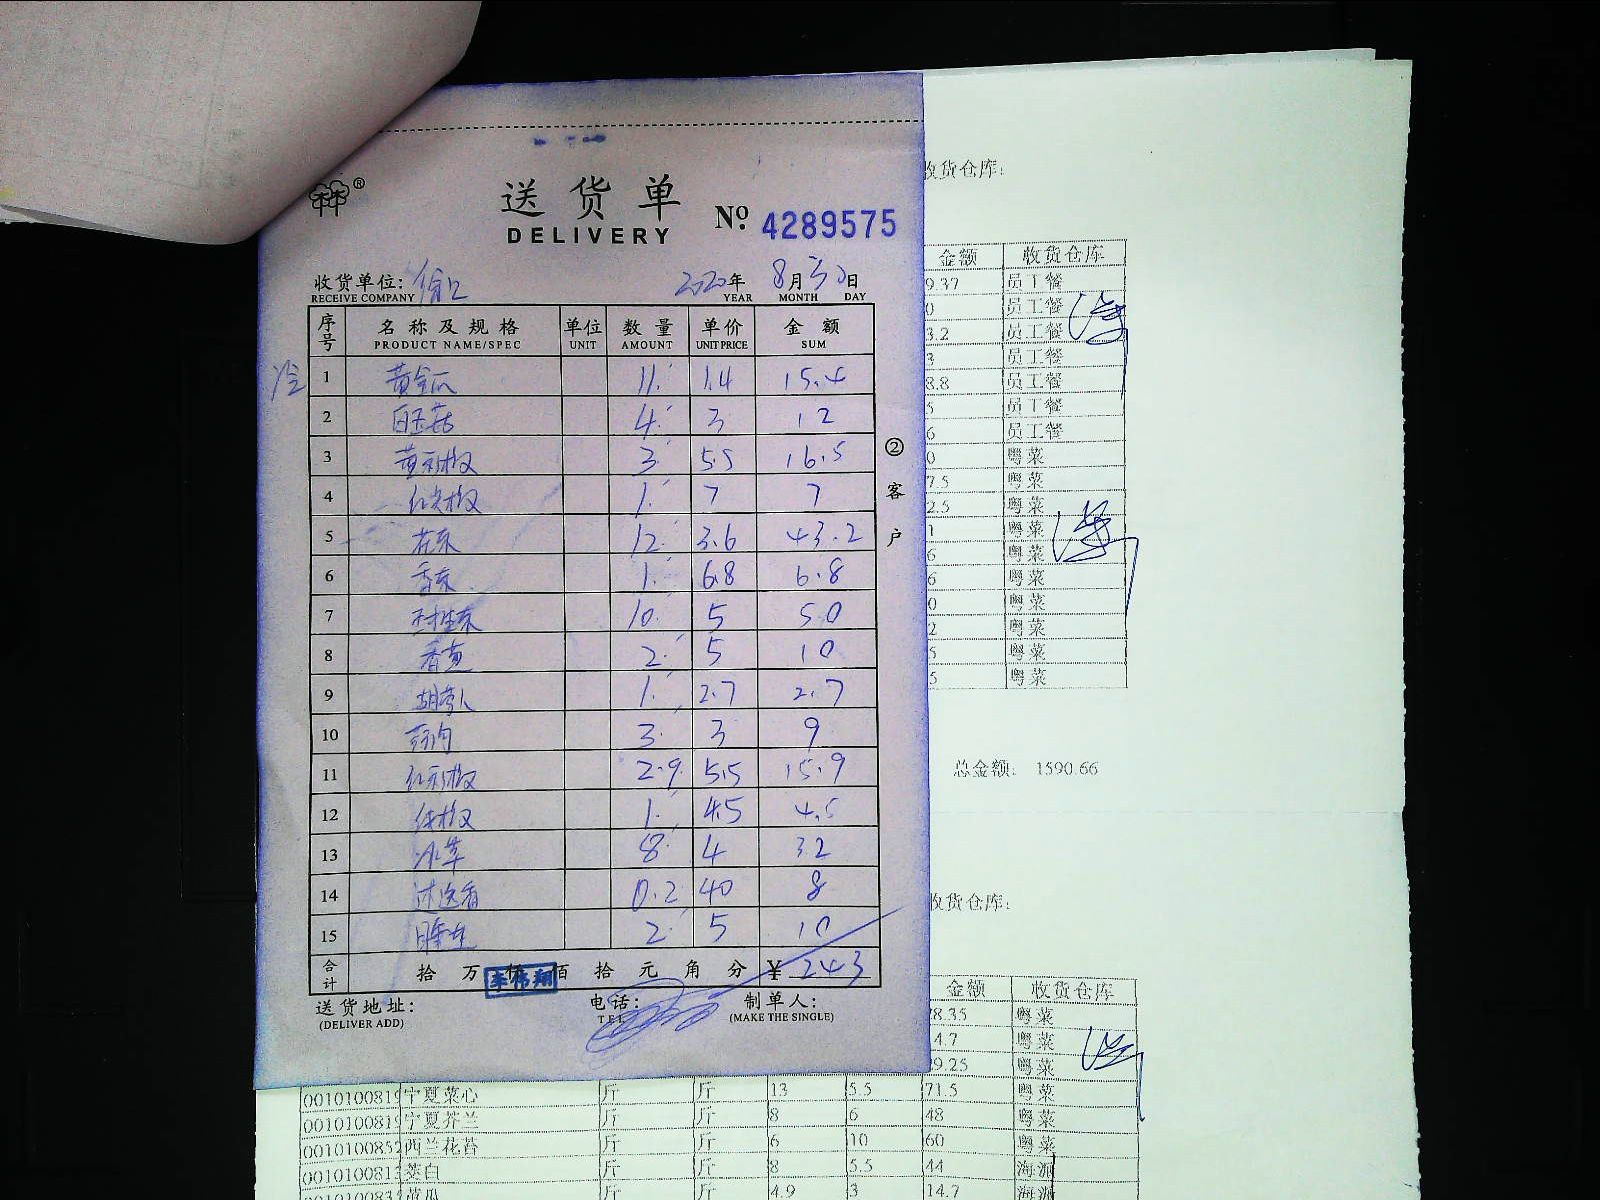 收货仓库:
送货单
DELIVERY
№ 4289575
收货单位:
RECEIVE COMPANY
2020年 8月30日
YEAR MONTH DAY
序号 名称及规格 单位 数量 单价 金额
PRODUCT NAME/SPEC UNIT AMOUNT UNIT PRICE SUM
冷 1 黄金瓜 11. 1.4 15.4
2 白玉菇 4. 3 12
3 黄彩椒 3. 5.5 16.5
4 红尖椒 1. 7 7
5 12. 3.6 43.2
6 1. 6.8 6.8
7 10. 5 50
8 2. 5 10
9 1. 2.7 2.7
10 3. 3 9
11 红彩椒 2.9. 5.5 15.9
12 1. 4.5 4.5
13 冰草 8. 4 32
14 0.2 40 8
15 2. 5 10
合计 拾 万 仟 佰 拾 元 角 分 ¥ 243
李伟翔
送货地址: 电话: 制单人:
(DELIVER ADD) TEL (MAKE THE SINGLE)
②客户
金额 收货仓库
9.37 员工餐
0 员工餐
3.2 员工餐
3 员工餐
8.8 员工餐
5 员工餐
6 员工餐
0 粤菜
7.5 粤菜
2.5 粤菜
1 粤菜
6 粤菜
6 粤菜
0 粤菜
2 粤菜
5 粤菜
5 粤菜
总金额: 1590.66
收货仓库:
金额 收货仓库
78.35 粤菜
4.7 粤菜
9.25 粤菜
001010081 宁夏菜心 斤 斤 13 5.5 71.5 粤菜
001010081 宁夏芥兰 斤 斤 8 6 48 粤菜
001010085 西兰花苔 斤 斤 6 10 60 粤菜
001010081 茭白 斤 斤 8 5.5 44 海派
00101008 黄瓜 斤 斤 4.9 3 14.7 海派